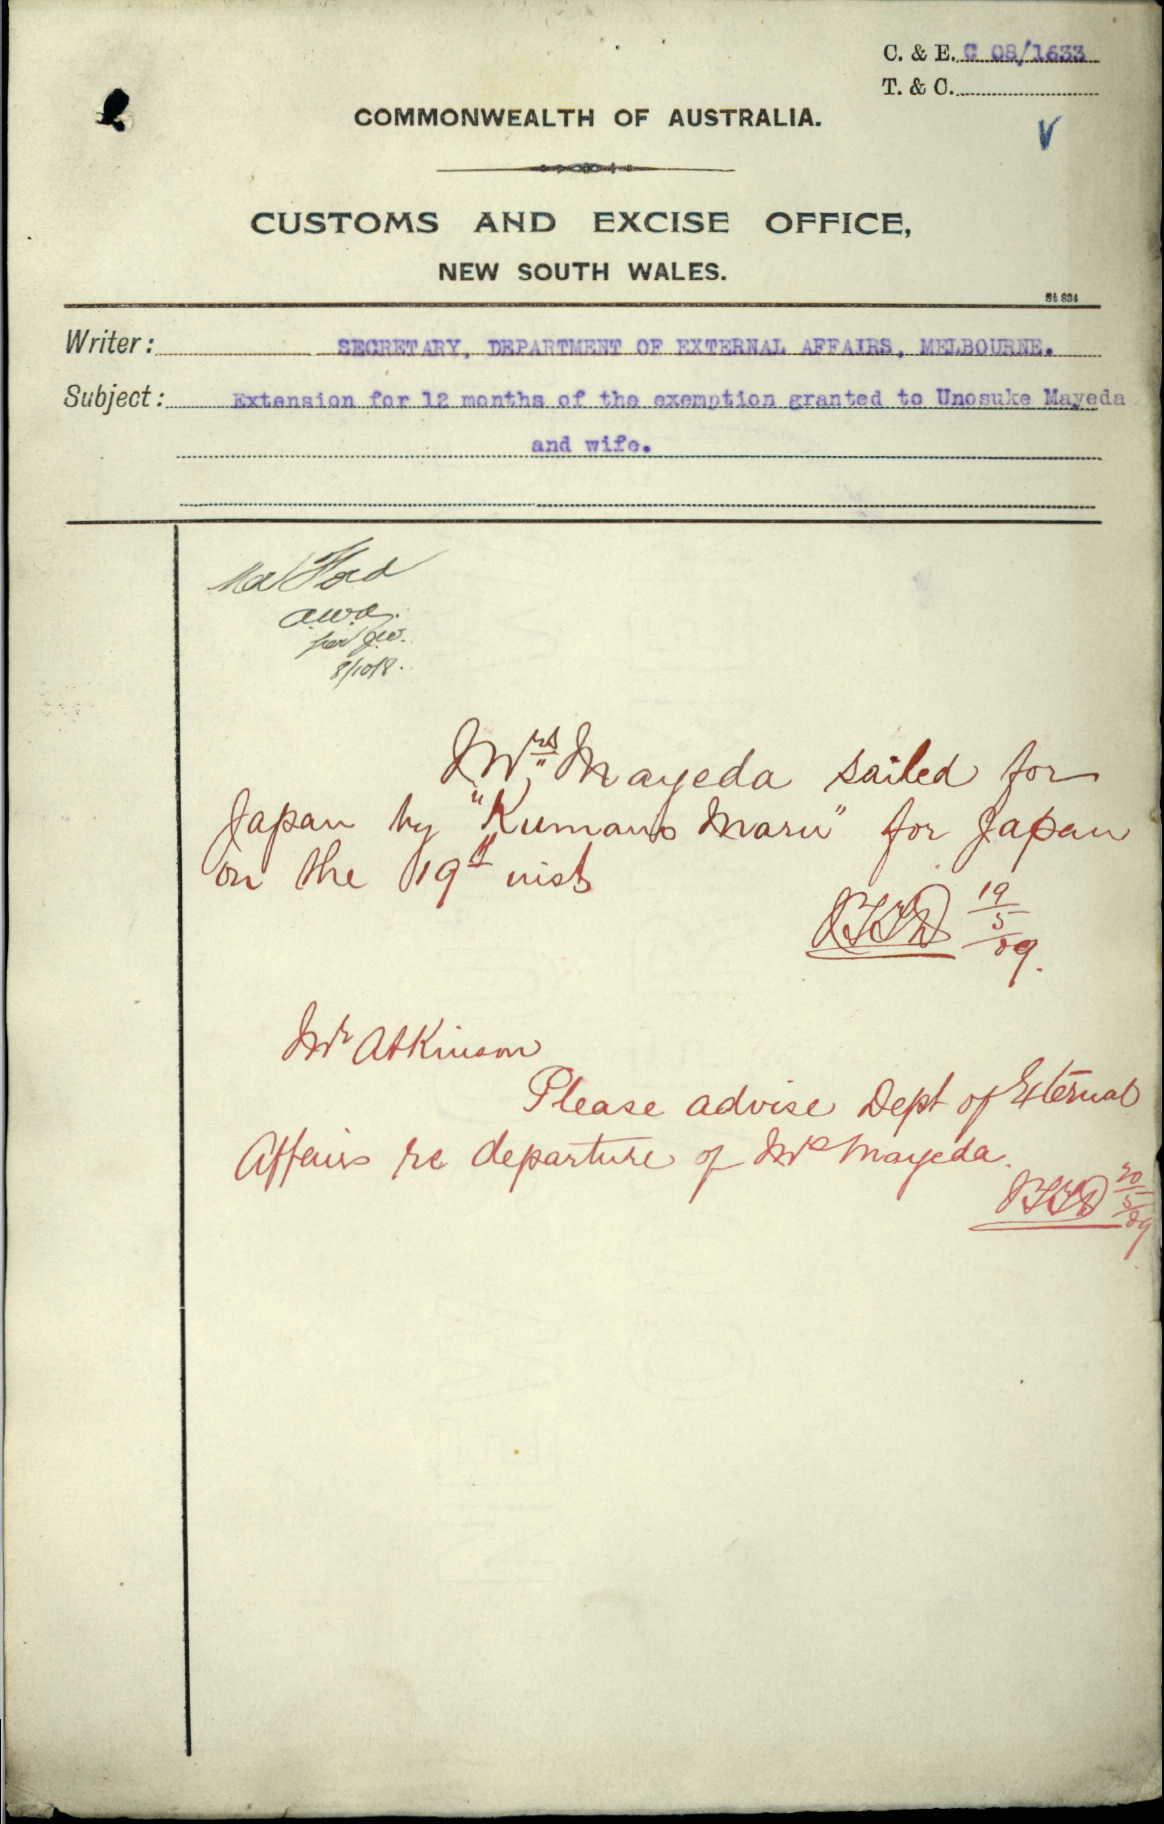 C. & E. C 08/1633
T. & C.
COMMONWEALTH OF AUSTRALIA.
CUSTOMS AND EXCISE OFFICE,
NEW SOUTH WALES.
St 834
Writer: SECRETARY, DEPARTMENT OF EXTERNAL AFFAIRS, MELBOURNE.
Subject: Extension for 12 months of the exemption granted to Unosuke Mayeda
and wife.
8/10/8.
Mrs Mayeda sailed for
Japan by "Kumano Maru" for Japan
on the 19th inst
19
5
09.
Mr Atkinson
Please advise Dept of External
Affairs re departure of Mrs Mayeda.
20
5
09